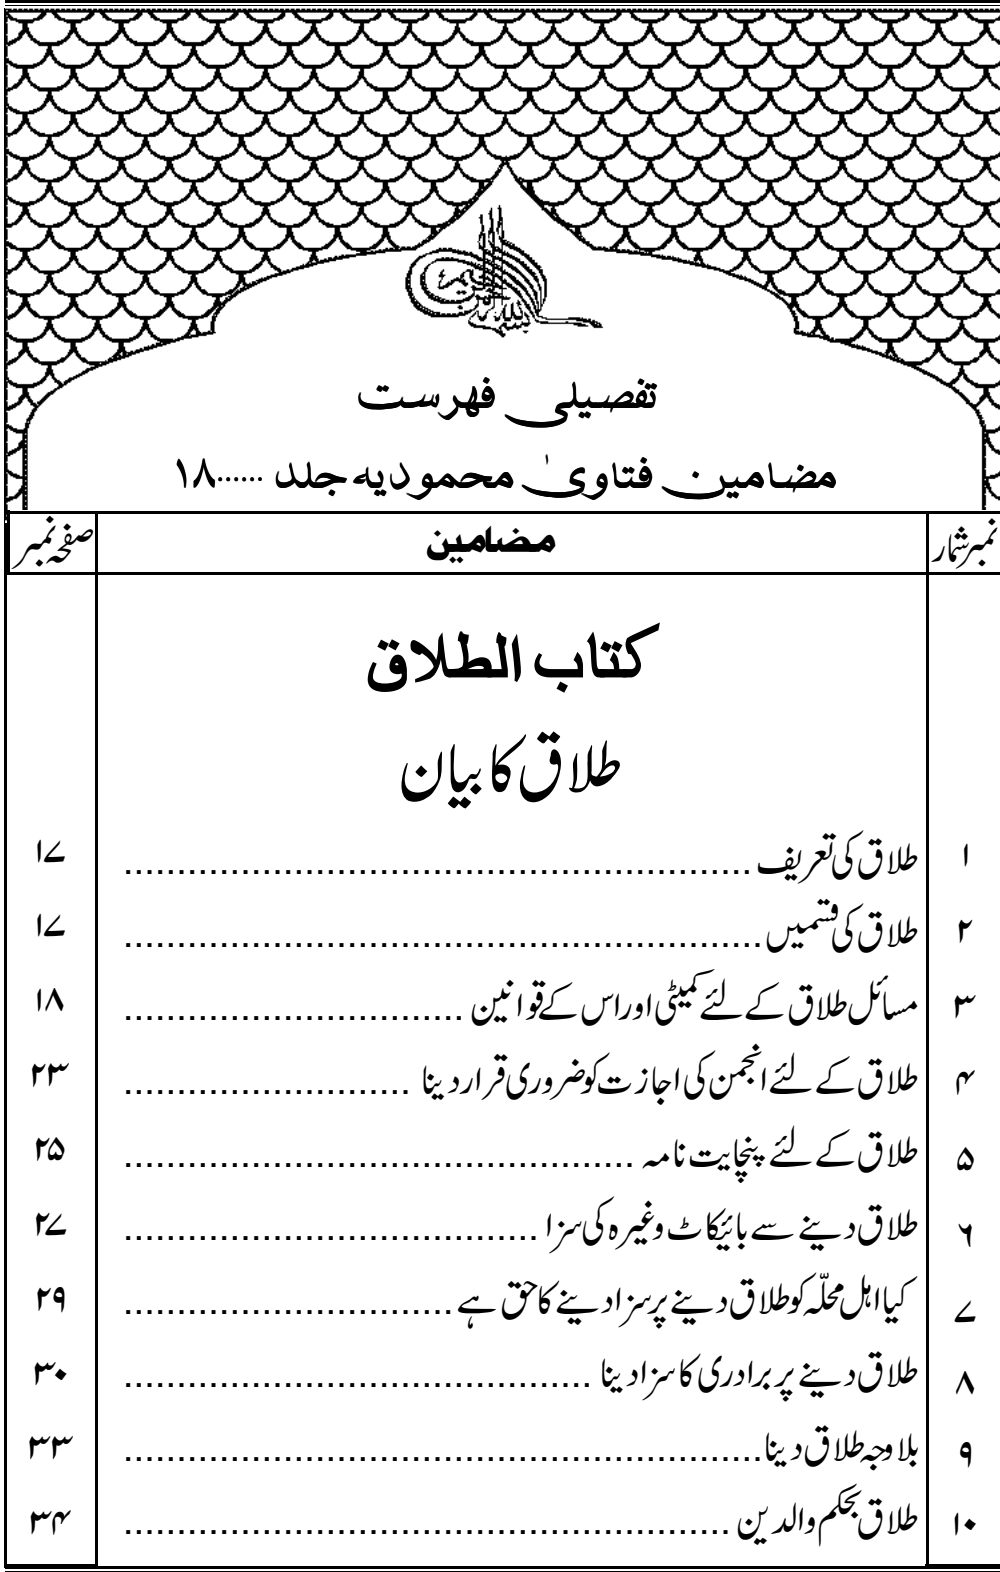 بسم اللہ الرحمن الرحیم
تفصیلی فہرست
مضامین فتاویٰ محمودیہ جلد ......۱۸
نمبرشمار مضامین صفحہ نمبر
کتاب الطلاق
طلاق کا بیان
۱ طلاق کی تعریف ........................................................... ۱۷
۲ طلاق کی قسمیں ............................................................ ۱۷
۳ مسائل طلاق کے لئے کمیٹی اور اس کے قوانین ................................ ۱۸
۴ طلاق کے لئے انجمن کی اجازت کو ضروری قرار دینا ........................... ۲۳
۵ طلاق کے لئے پنچایت نامہ ................................................ ۲۵
۶ طلاق دینے سے بائیکاٹ وغیرہ کی سزا ....................................... ۲۷
۷ کیا اہل محلّہ کو طلاق دینے پر سزا دینے کا حق ہے ............................... ۲۹
۸ طلاق دینے پر برادری کا سزا دینا ............................................ ۳۰
۹ بلا وجہ طلاق دینا ............................................................ ۳۳
۱۰ طلاق بحکم والدین ......................................................... ۳۴